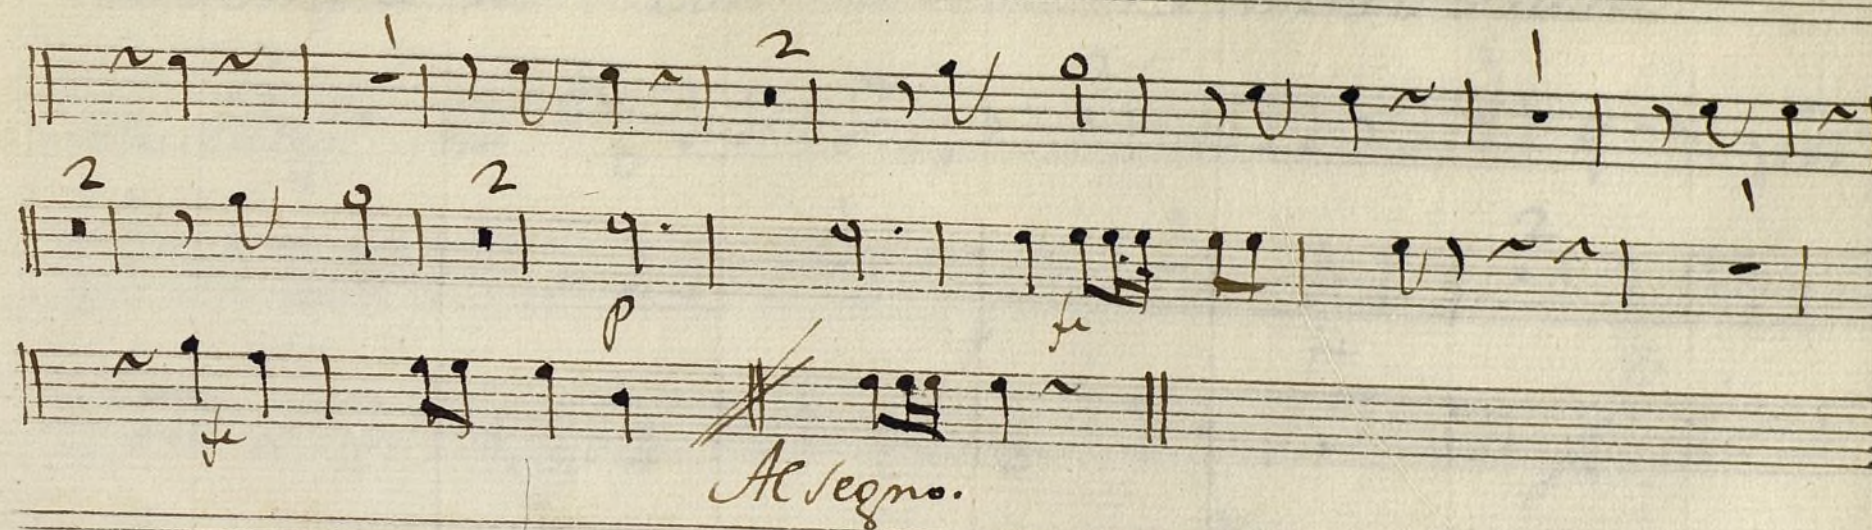 1 2 1
2 2 1
p fe
fe
Al segno.